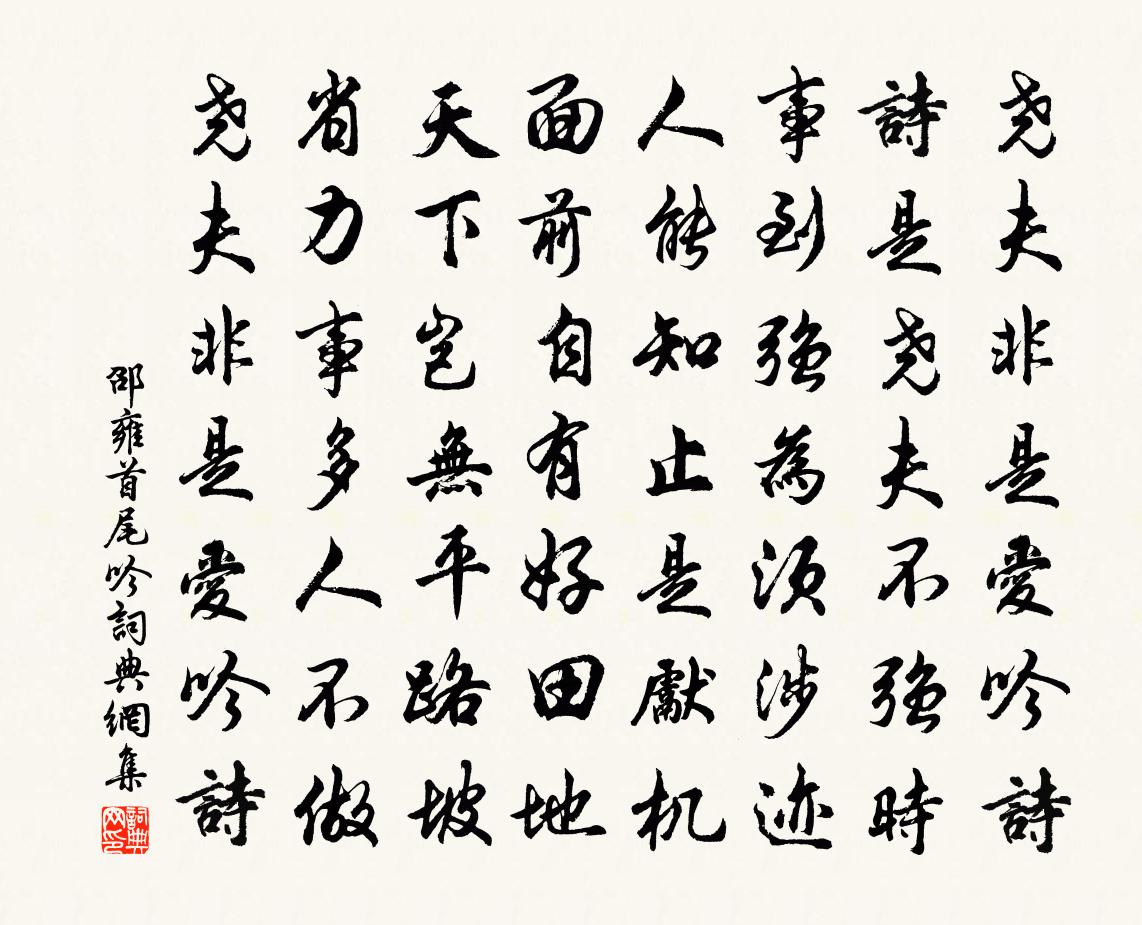 尧夫非是愛吟詩
詩是尧夫不強時
事到強為須涉迹
人能知止是獻机
面前自有好田地
天下岂無平路坡
省力事多人不做
尧夫非是愛吟詩
邵雍首尾吟詞典網集
詞典网印